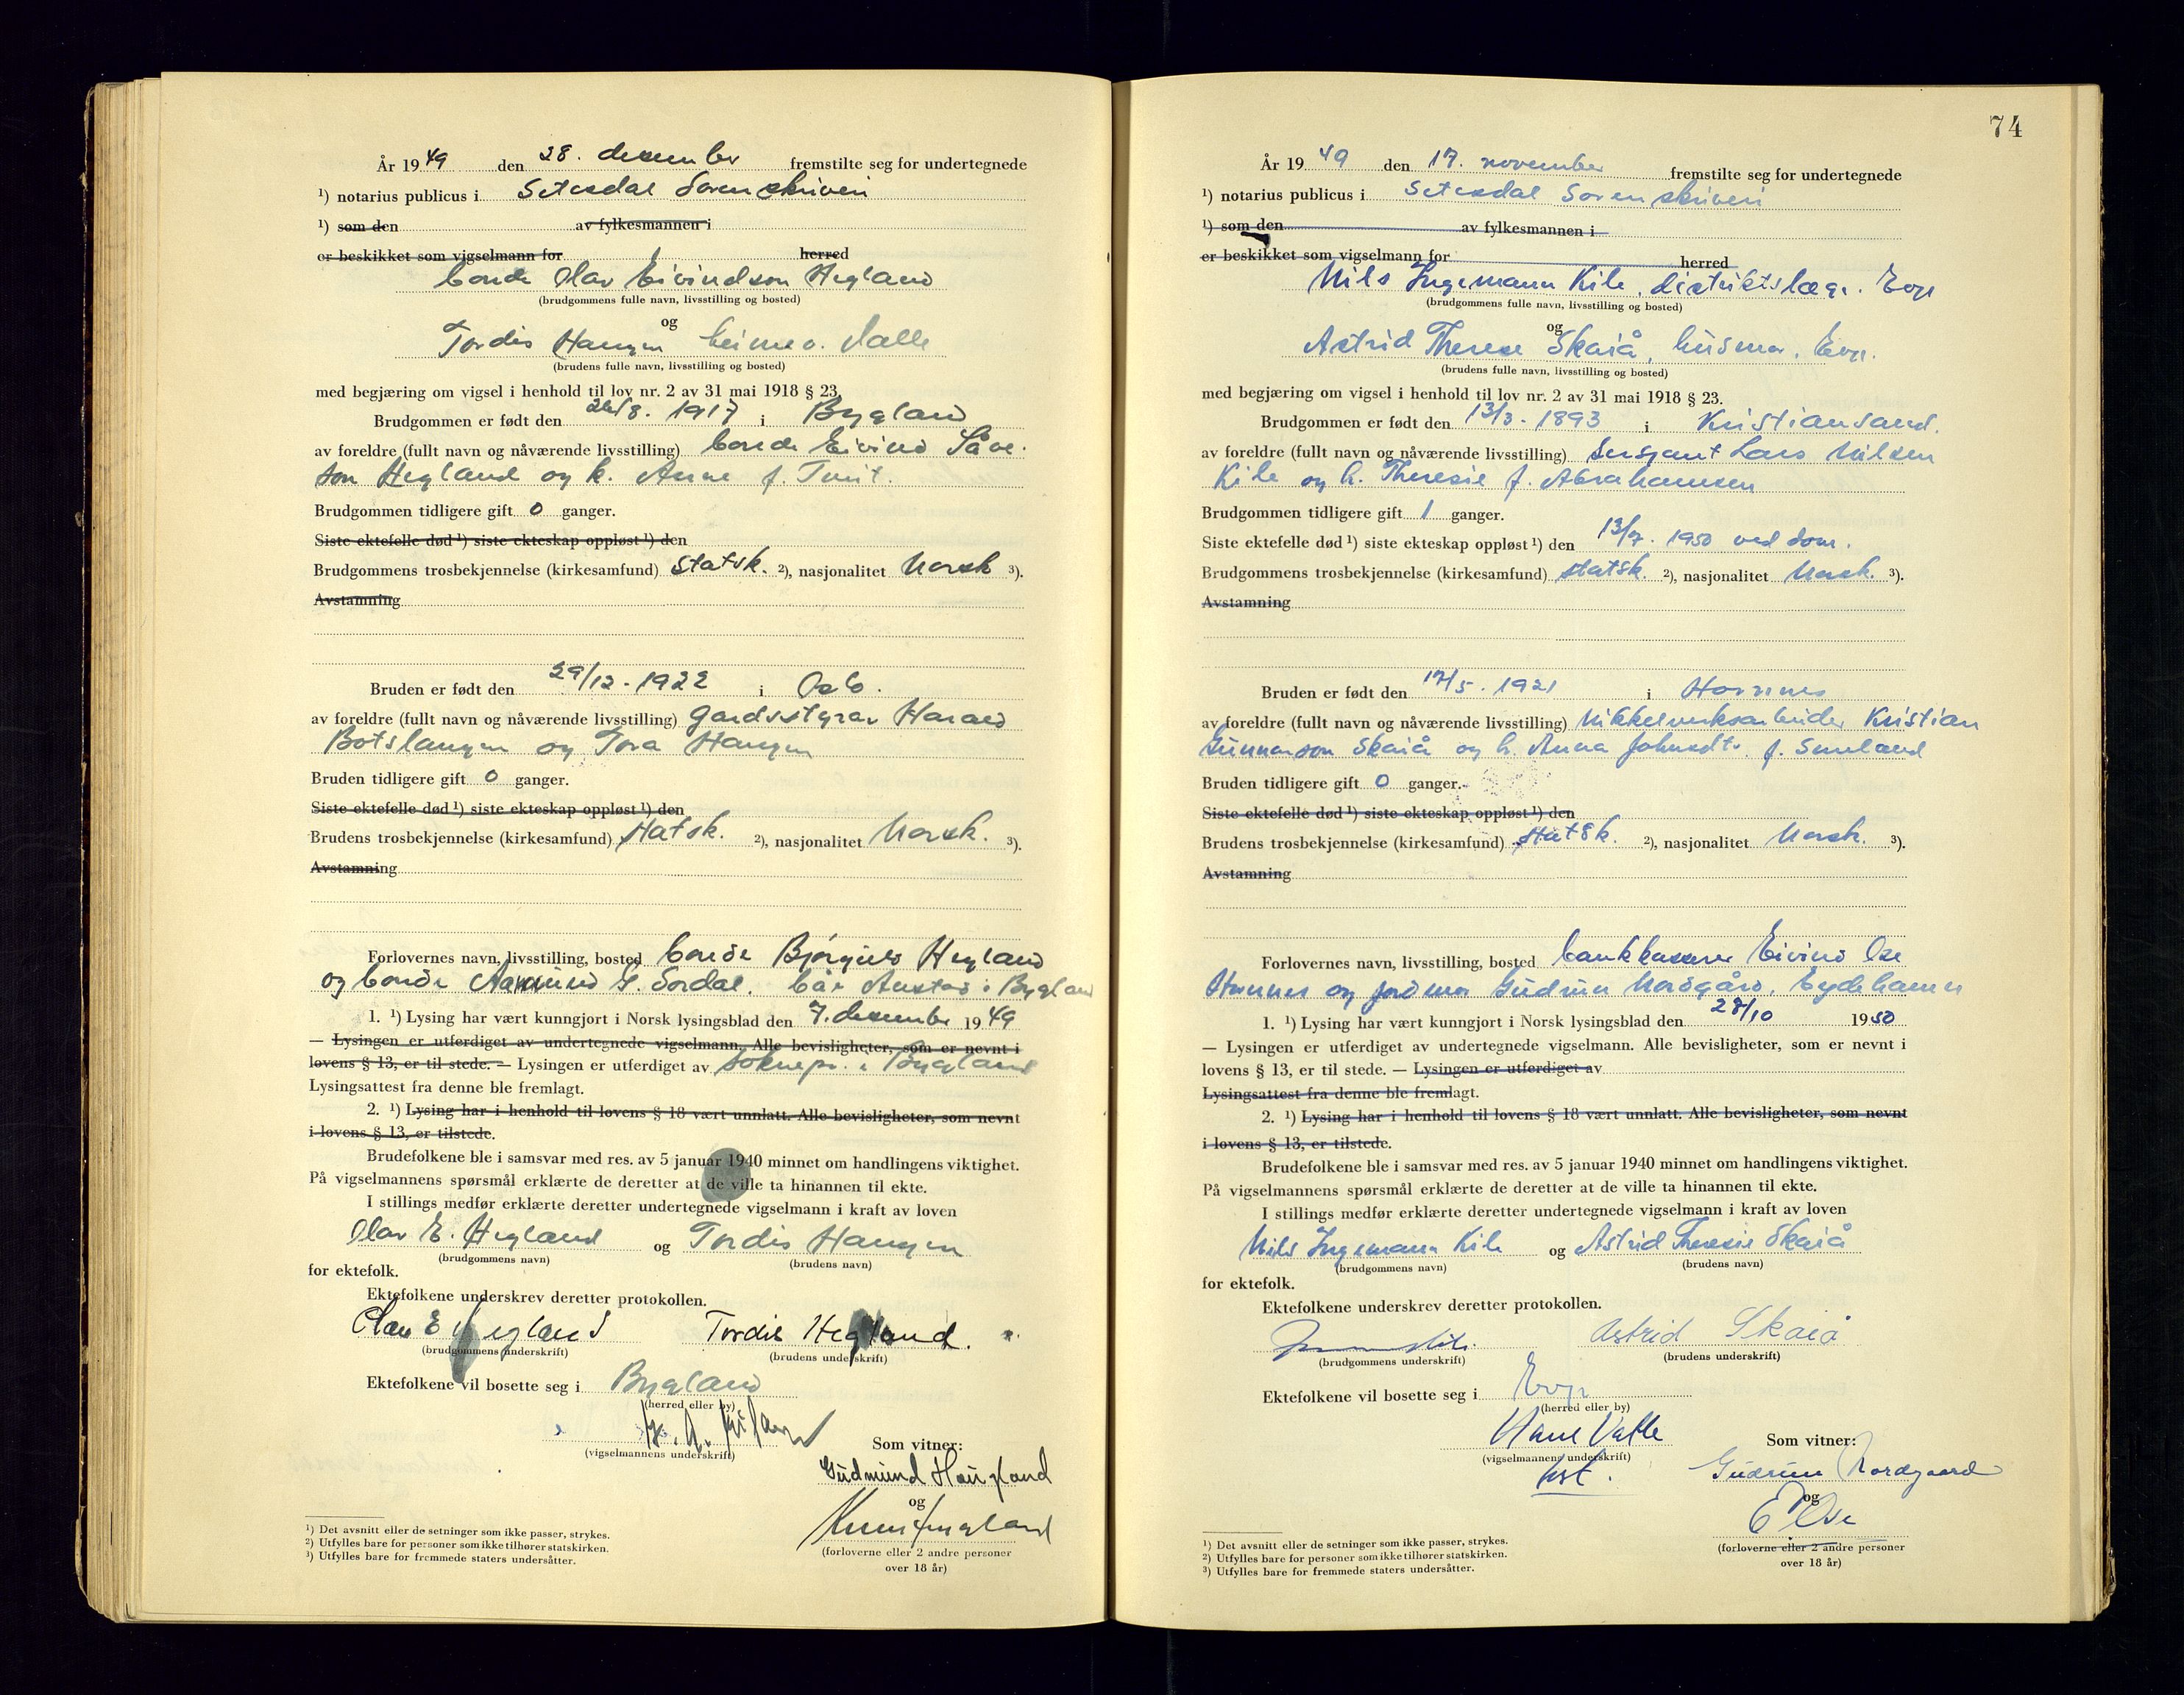 År 1949 den 28. desember fremstilte seg for undertegnede
¹) notarius publicus i Setesdal Sorenskriveri
¹) som den av fylkesmannen i
er beskikket som vigselmann for herred
bonde Olav Eivindson Hegland
(brudgommens fulle navn, livsstilling og bosted)
og
Tordis Haugen heimev. Valle
(brudens fulle navn, livsstilling og bosted)
med begjæring om vigsel i henhold til lov nr. 2 av 31 mai 1918 § 23.
Brudgommen er født den /8. 1917 i Bygland
av foreldre (fullt navn og nåværende livsstilling) bonde Eivind Såve-
son Hegland og k. Anne f. Tveit.
Brudgommen tidligere gift 0 ganger.
Siste ektefelle død ¹) siste ekteskap oppløst ¹) den
Brudgommens trosbekjennelse (kirkesamfund) Statsk. ²), nasjonalitet Norsk ³).
Avstamning
Bruden er født den 29/12. 1922 i Oslo.
av foreldre (fullt navn og nåværende livsstilling) gardsstyrar Harald
Botslangen og Tora Haugen
Bruden tidligere gift 0 ganger.
Siste ektefelle død ¹) siste ekteskap oppløst ¹) den
Brudens trosbekjennelse (kirkesamfund) Statsk. ²), nasjonalitet Norsk. ³).
Avstamning
Forlovernes navn, livsstilling, bosted bonde Bjørgulv Hegland
og bonde Aamund G. Sordal. båe Austad i Bygland
1. ¹) Lysing har vært kunngjort i Norsk lysingsblad den 7. desember 1949
— Lysingen er utferdiget av undertegnede vigselmann. Alle bevisligheter, som er nevnt i
lovens § 13, er til stede. — Lysingen er utferdiget av soknepr. i Bygland
Lysingsattest fra denne ble fremlagt.
2. ¹) Lysing har i henhold til lovens § 18 vært unnlatt. Alle bevisligheter, som nevnt
i lovens § 13, er tilstede.
Brudefolkene ble i samsvar med res. av 5 januar 1940 minnet om handlingens viktighet.
På vigselmannens spørsmål erklærte de deretter at de ville ta hinannen til ekte.
I stillings medfør erklærte deretter undertegnede vigselmann i kraft av loven
Olav E. Hegland og Tordis Haugen
(brudgommens navn) (brudens navn)
for ektefolk.
Ektefolkene underskrev deretter protokollen.
Olav E Hegland Tordis Hegland.
(brudgommens underskrift) (brudens underskrift)
Ektefolkene vil bosette seg i Bygland
(herred eller by)
(vigselmannens underskrift)
Som vitner:
Gudmund Haugland
og
(forloverne eller 2 andre personer
over 18 år)
¹) Det avsnitt eller de setninger som ikke passer, strykes.
²) Utfylles bare for personer som ikke tilhører statskirken.
³) Utfylles bare for fremmede staters undersåtter.
74
År 1949 den 17. november fremstilte seg for undertegnede
¹) notarius publicus i Setesdal Sorenskriveri
¹) som den av fylkesmannen i
er beskikket som vigselmann for herred
Nils Ingemann Kile, distriktslæge. Evje
(brudgommens fulle navn, livsstilling og bosted)
og
Astrid Therese Skaiå, husmor, Evje.
(brudens fulle navn, livsstilling og bosted)
med begjæring om vigsel i henhold til lov nr. 2 av 31 mai 1918 § 23.
Brudgommen er født den 13/3. 1893 i Kristiansand.
av foreldre (fullt navn og nåværende livsstilling) sersjant Lars Nilsen
Kile og h. Theresie f. Abrahamsen
Brudgommen tidligere gift 1 ganger.
Siste ektefelle død ¹) siste ekteskap oppløst ¹) den 1950 ved dom.
Brudgommens trosbekjennelse (kirkesamfund) statsk. ²), nasjonalitet Norsk. ³).
Avstamning
Bruden er født den 17/5. 1921 i Hornnes
av foreldre (fullt navn og nåværende livsstilling) Nikkelverksarbeider Kristian
Gunnarson Skaiå og h. Anna Johnsdtr. f. Seneland
Bruden tidligere gift 0 ganger.
Siste ektefelle død ¹) siste ekteskap oppløst ¹) den
Brudens trosbekjennelse (kirkesamfund) statsk. ²), nasjonalitet Norsk. ³).
Avstamning
Forlovernes navn, livsstilling, bosted bankkasserer Eivind Ose
Hornnes og jordmor Gudrun Nordgård, Eydehamn
1. ¹) Lysing har vært kunngjort i Norsk lysingsblad den 28/10 1950
— Lysingen er utferdiget av undertegnede vigselmann. Alle bevisligheter, som er nevnt i
lovens § 13, er til stede. — Lysingen er utferdiget av
Lysingsattest fra denne ble fremlagt.
2. ¹) Lysing har i henhold til lovens § 18 vært unnlatt. Alle bevisligheter, som nevnt
i lovens § 13, er tilstede.
Brudefolkene ble i samsvar med res. av 5 januar 1940 minnet om handlingens viktighet.
På vigselmannens spørsmål erklærte de deretter at de ville ta hinannen til ekte.
I stillings medfør erklærte deretter undertegnede vigselmann i kraft av loven
Nils Ingemann Kile og Astrid Theresie Skaiå
(brudgommens navn) (brudens navn)
for ektefolk.
Ektefolkene underskrev deretter protokollen.
Astrid Skaiå
(brudgommens underskrift) (brudens underskrift)
Ektefolkene vil bosette seg i Evje
(herred eller by)
Hans Valle
(vigselmannens underskrift)
kst.
Som vitner:
Gudrun Nordgaard
og
E. Ose
(forloverne eller 2 andre personer
over 18 år)
¹) Det avsnitt eller de setninger som ikke passer, strykes.
²) Utfylles bare for personer som ikke tilhører statskirken.
³) Utfylles bare for fremmede staters undersåtter.